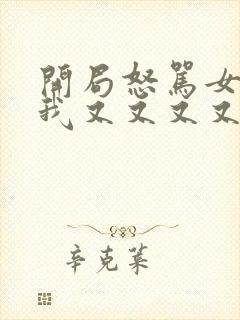 開局怒駡女
我又又又又
辛克菜